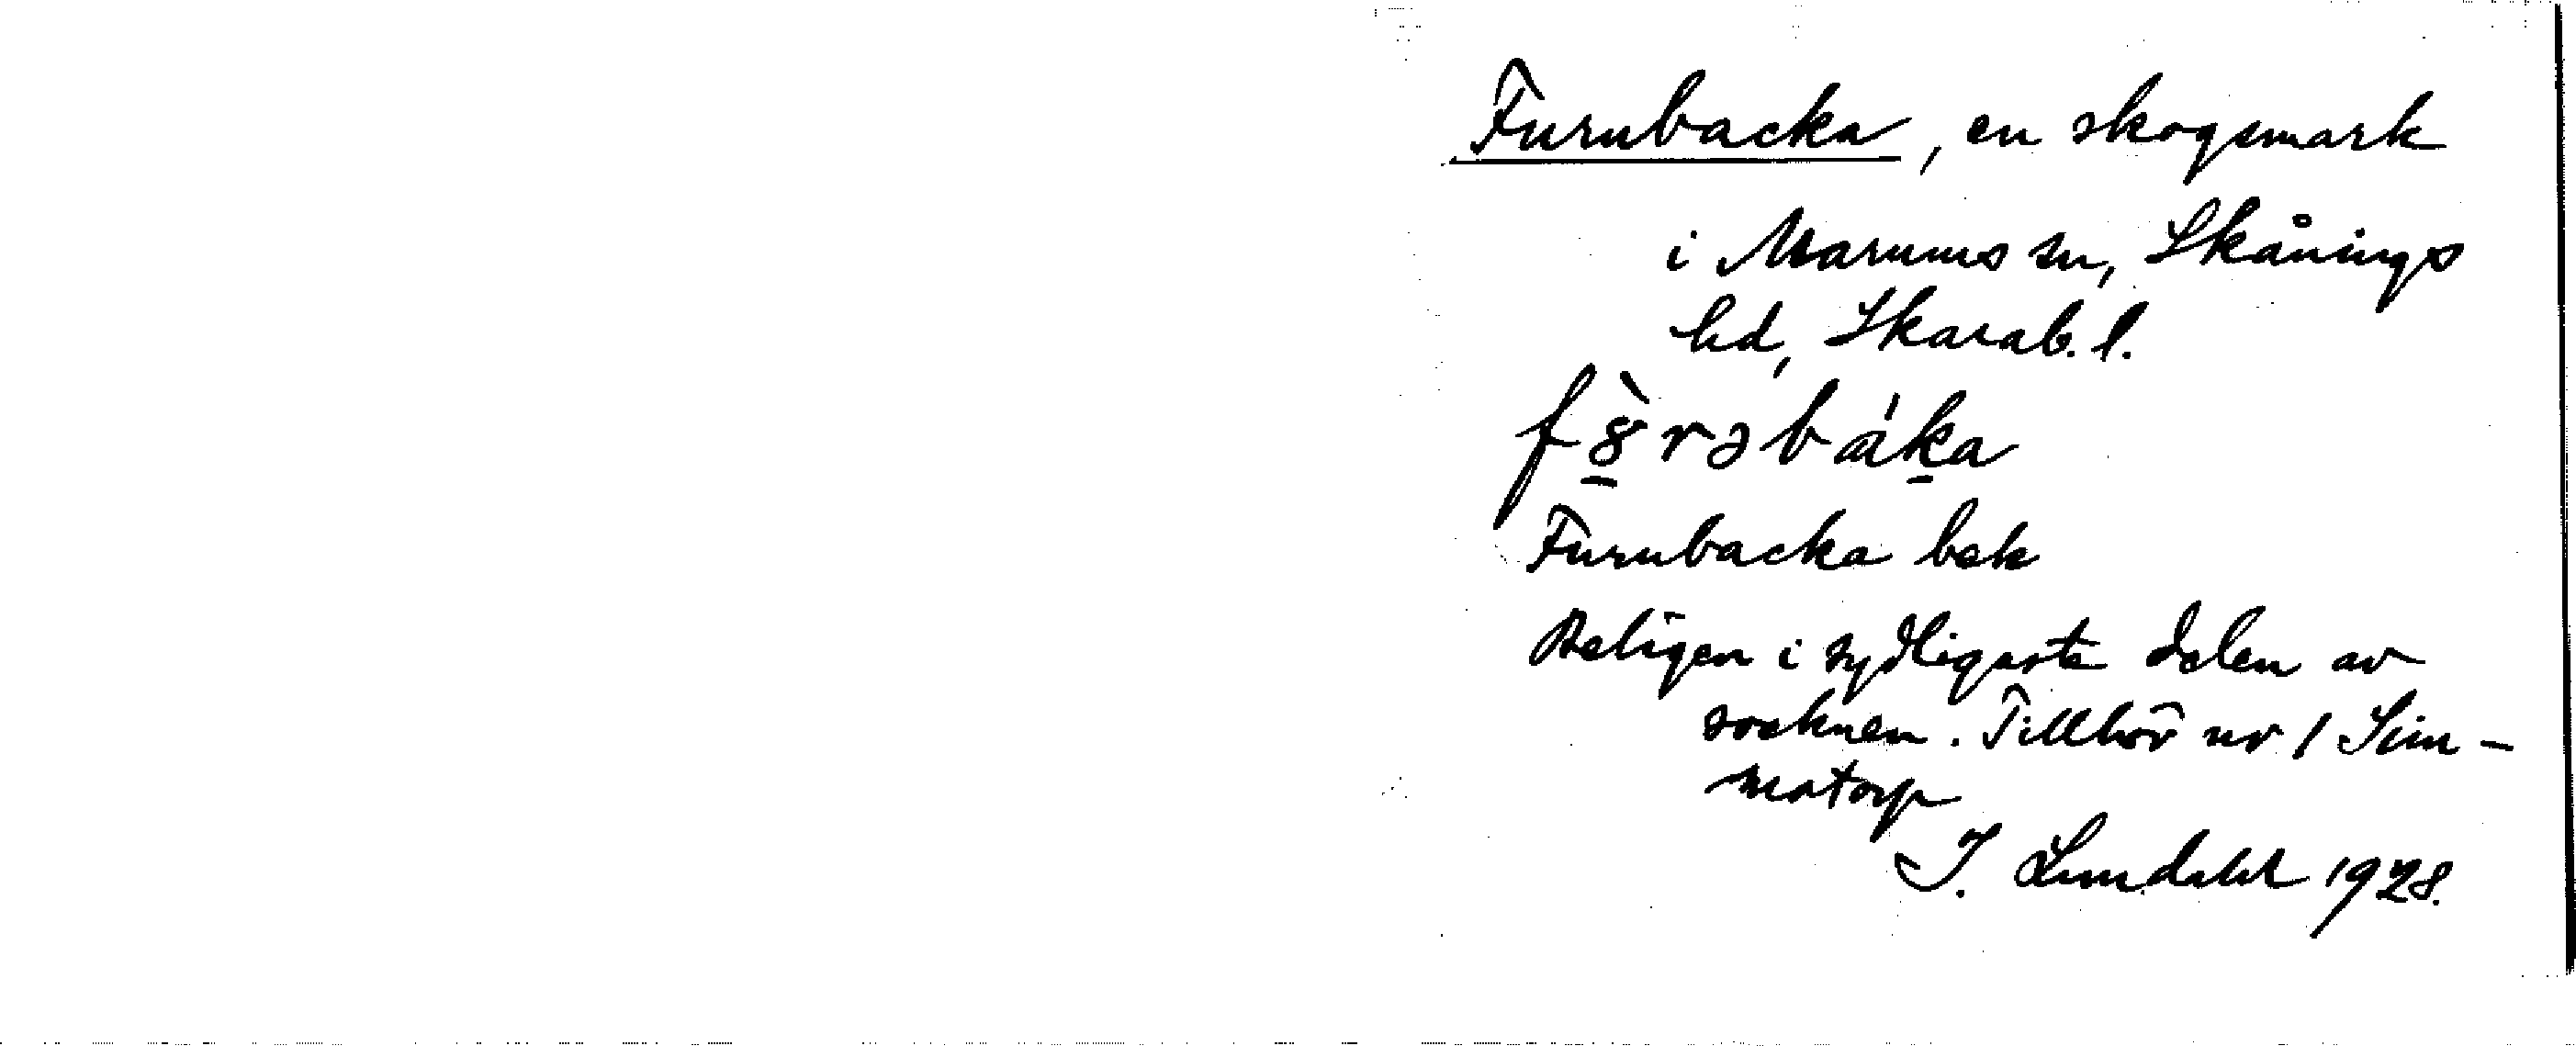 Furubacka, en skogsmark
i Marums sn, Skånings
hd, Skarab. l.
f8̠̀rəbák̠a
Furubacka bek
Belägen i sydligaste delen av
socknen. Tillhör nr 1 Sim-
matorp
J. Lundahl 1928.